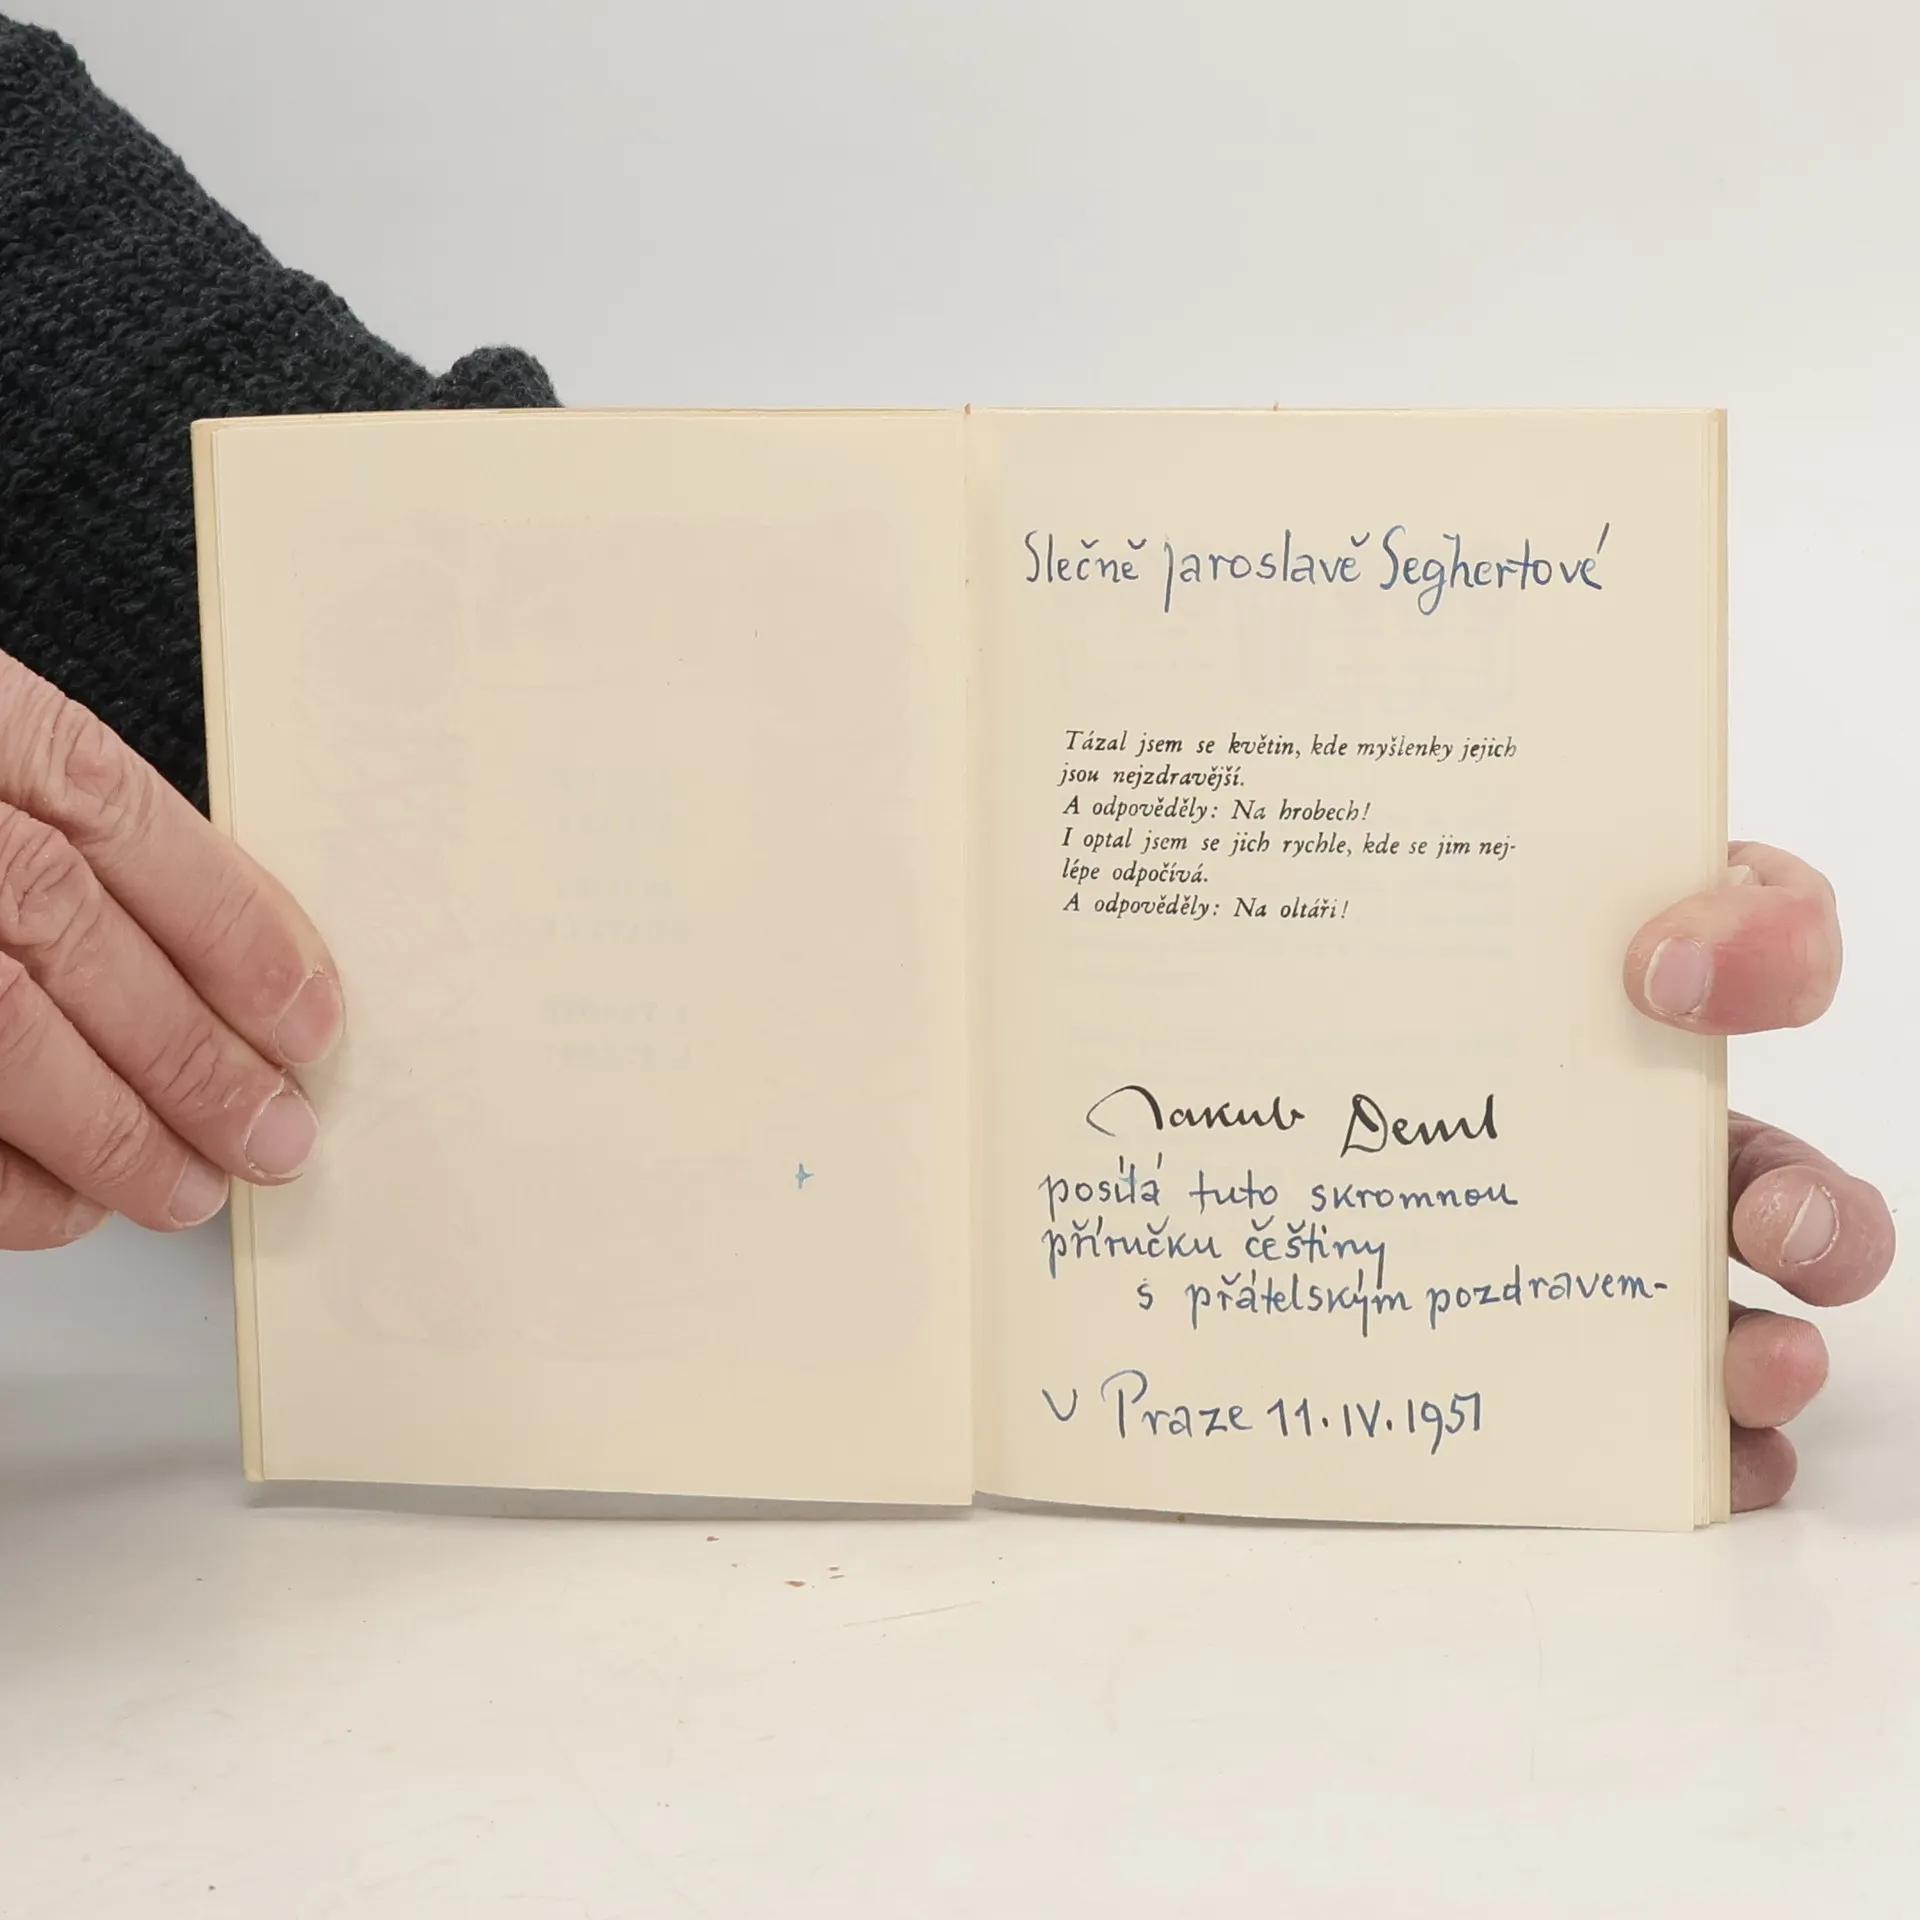 Slečně Jaroslavě Seghertové
Tázal jsem se květin, kde myšlenky jejich
jsou nejzdravější.
A odpověděly: Na hrobech!
I optal jsem se jich rychle, kde se jim nej-
lépe odpočívá.
A odpověděly: Na oltáři!
Jakub Deml
posílá tuto skromnou
příručku češtiny
s přátelským pozdravem-
V Praze 11. IV. 1951